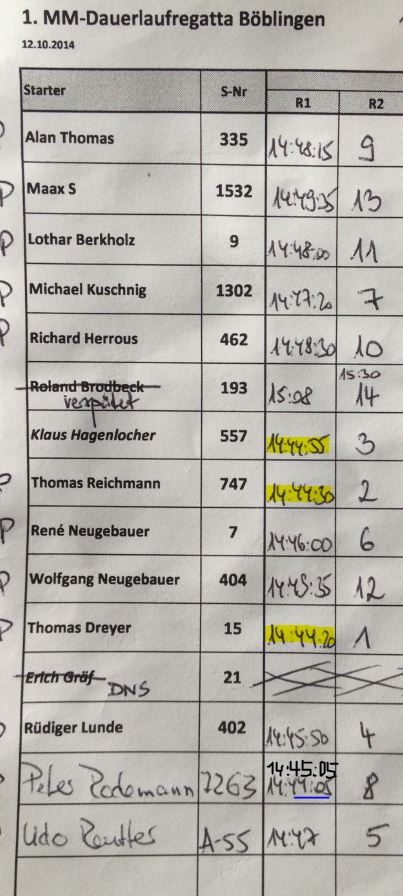 1. MM-Dauerlaufregatta Böblingen
12.10.2014
Starter S-Nr R1 R2
Alan Thomas 335 14:48:15 9
Maax S 1532 14:49:35 13
Lothar Berkholz 9 14:48:00 11
Michael Kuschnig 1302 14:47:20 7
Richard Herrous 462 14:48:30 10
15:30
Roland Brodbeck 193 15:08 14
verspätet
Klaus Hagenlocher 557 14:44:55 3
Thomas Reichmann 747 14:44:30 2
René Neugebauer 7 14:46:00 6
Wolfgang Neugebauer 404 12
Thomas Dreyer 15 14:44:20 1
Erich Gräf 21
DNS
Rüdiger Lunde 402 14:45:50 4
14:45:05
8
Udo A-55 14:47 5